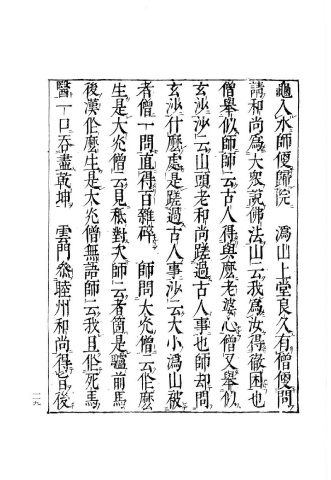 龜入水師便歸院　溈山上堂良久有僧便問
講和尚爲大衆說佛法山云我爲汝得徹困也
僧舉似師師云古人得與麽老婆心僧又舉似
玄沙沙云山頭老和尚蹉過古人事也師却問
玄沙什麽處是蹉過古人事沙云大小溈山被
者僧一問直得百雜碎　師問大光僧云作麽
生是大光僧云見秪對次師云者箇是驢前馬
後漢作麽生是大光僧無語師云我且作死馬
醫一口吞盡乾坤　雲門參睦州和尚得旨後
一一九